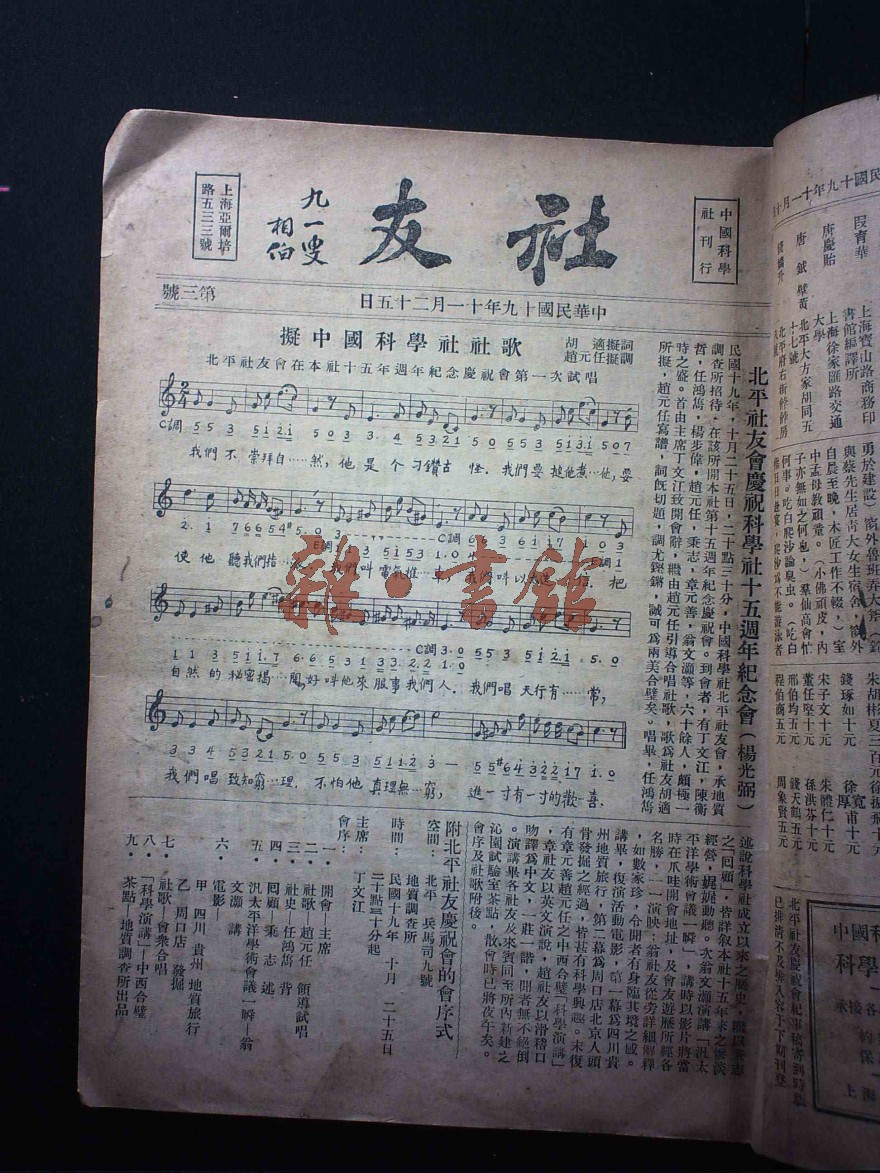 社友
九一叟
相伯
中國科學
社刊行
上海亞爾培
路五三三號
中華民國十九年十一月二十五日
第三號
擬中國科學社社歌
胡適擬詞
趙元任擬調
北平社友會在本社十五年週年紀念慶祝會第一次試唱
C調
我們不崇拜自……然，他是个刁鑽古怪．我們要搥他煮…他，要
使他聽我們指
我們叫電氣推…車，我們叫以太送
把
自然的秘密揭…開，好叫他來服事我們人．我們唱天行有……常，
我們唱致知窮…理．不怕他真理無…窮，進一寸有一寸的歡…喜．
北平社友會慶祝科學社十五週年紀念會（楊光弼）
民國十九年，十月二十五日，二十點三十分，中國科學社北平社友會，承地質
調查所招待，在該所開本社第十五週年紀念慶祝會。到會者，有丁文江，陳衡
哲，任鴻雋，楊步偉，趙元任，秉志，章元善，翁文灝等，六十餘人，頗極一
時之盛。首由主席丁文江致開會辭，繼由趙元任引導合唱社歌，歌爲社友胡適
所擬，趙元任寫譜，詞旣切題，調尤鏗鏘，誠可爲兩美合璧矣。唱畢，任鴻雋
述說科學社成立以來之歷史，繼以秉志
之「回顧」，皆詳叙本社十五年來之慘淡
經營，娓娓動聽。次翁文灝演講「汎太
平洋學術會議一瞬」，講時以影片將當
時在爪哇開會地址，及會友遊歷所經各
名勝，一一演映；翁社友從旁詳細解釋
，如數家珍，令聞者有身臨其境之感。
講畢，復演活動電影，第一幕爲四川貴
州地質旅行，第二幕爲周口店北京人頭
骨發掘之經過，皆甚有科學興趣。末復
有章元善趙元任之中西合璧「科學演講」
，章社友以英文演說，趙社友以滑稽口
吻譯爲中文，一莊一諧，聞者無不絕倒
。演講畢各社友及來賓同至所內新建之
沁園試驗室茶點，散會時已將夜午矣。
會序及社歌附後。
附北平社友慶祝會的會序式
空間：北平，兵馬司九號
地質調查所
時間：民國十九年，十月，二十五日
二十點三十分起
主席：丁文江
會序：
一·開會—主席
二·社歌—趙元任 領導試唱
三·社史—任鴻雋 背
四·囘顧—秉志 述
五·汎太平洋學術會議一瞬—翁
文灝 講
六·電影—
甲·四川，貴州，地質旅行
乙·周口店，發掘
七·社歌—會衆合唱
八·「科學演講」—中西合璧
九·茶點—地質調查所出品
雜·書館
段育華
上海寶山路商務印
書館編譯所
唐慶貽
上海徐家匯路交通
大學
唐鉞擘黃
北平大方家胡同五
十七號
勇於建設）窗外魯班弄大斧（
與蔡先生居靑大女生宿舍，窗外
自晨至晚，木匠工作不輟，）室
中孟母敎頑童。（小佛頑皮，內
子亦無如之何也，）羣仙高會忙
何事。吃白爬沙論臭虫。（吃白
朱胡彬夏三百元
錢琢如十元
徐寬甫十元
徐厚
朱子文十元
朱體仁十元
董任堅十元
孫洪芬十元
邢伯均五元
錢天鶴五元
程伯商五元
周象賢五元
北平社友慶祝會紀事稿寄到時
已排滿不及排入容于下期刊登
中國科
科學
承接各
上海